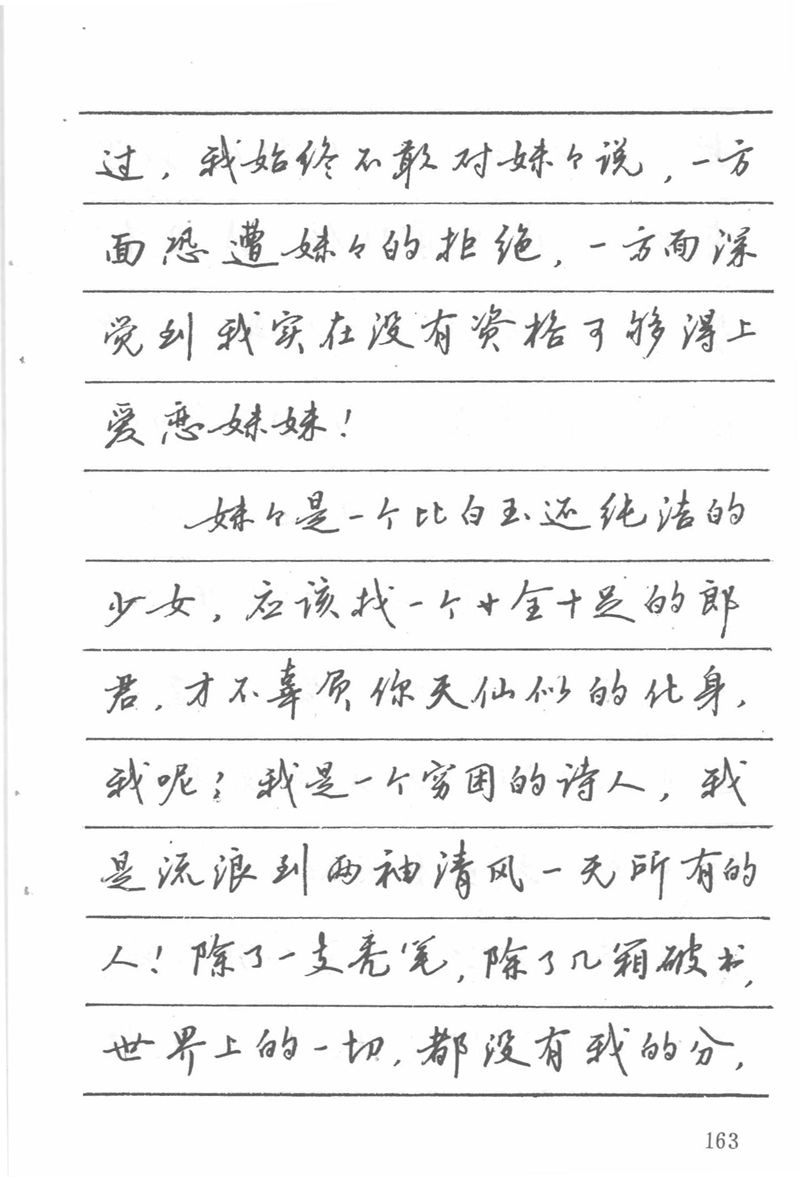 过，我始终不敢对妹々说，一方
面恐遭妹々的拒绝，一方面深
觉到我实在没有资格可够得上
爱恋妹妹！
妹々是一个比白玉还纯洁的
少女，应该找一个十全十足的郎
君，才不辜负你天仙似的化身，
我呢？我是一个穷困的诗人，我
是流浪到两袖清风一无所有的
人！除了一支秃笔，除了几箱破书，
世界上的一切，都没有我的分，
163